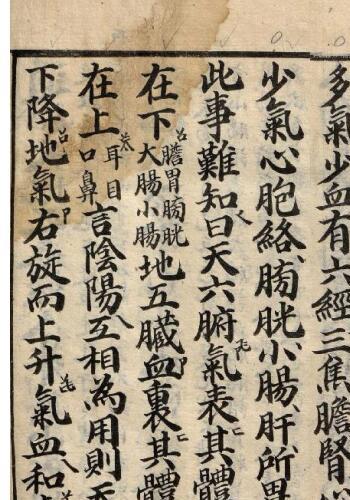 多氣少血有六經三焦膽腎
少氣心胞絡膀胱小腸肝所
此事難知曰天六腑氣表其體
在下膽胃膀胱大腸小腸地五臟血裏其體
在上耳目口鼻言陰陽互相為用則天
下降地氣右旋而上升氣血和